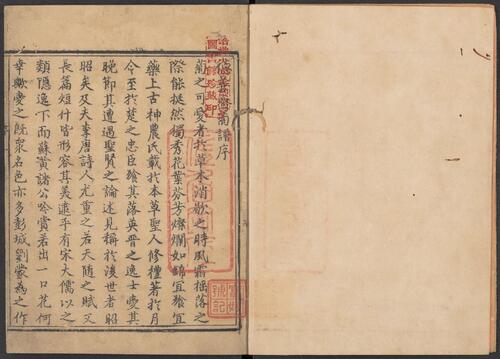 德善齋菊譜序
菊之可愛者於草木消歇之時風霜搖落之
際能挺然獨秀花葉芬芳燦爛如錦宜飱宜
藥上古神農氏載於本草聖人修禮著於月
令至於楚之忠臣飱其落英晉之逸士愛其
晚節其遭遇聖賢之論述見稱於後世者昭
昭矣及夫季唐詩人尤重之若天隨之賦又
長篇短什皆形容其美逮乎有宋大儒以之
類隱逸下而蘇黃諸公吟賞若出一口花何
幸歟愛之既衆名色亦多彭城劉蒙爲之作